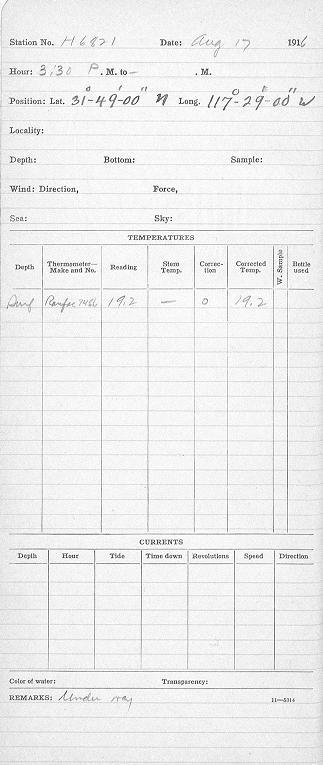 Station No. H6821 Date: Aug 17 1916
Hour: 3:30 P. M. to — . M.
Position: Lat. 31°-49'-00" N Long. 117°-29'-00" W
Locality:
Depth: Bottom: Sample:
Wind: Direction, Force,
Sea: Sky:
TEMPERATURES
Depth Thermometer—Make and No. Reading Stem Temp. Correction Corrected Temp. W. Sample Bottle used
Surf 7486 19.2 — 0 19.2
CURRENTS
Depth Hour Tide Time down Revolutions Speed Direction
Color of water: Transparency:
REMARKS: Under way 11—5314